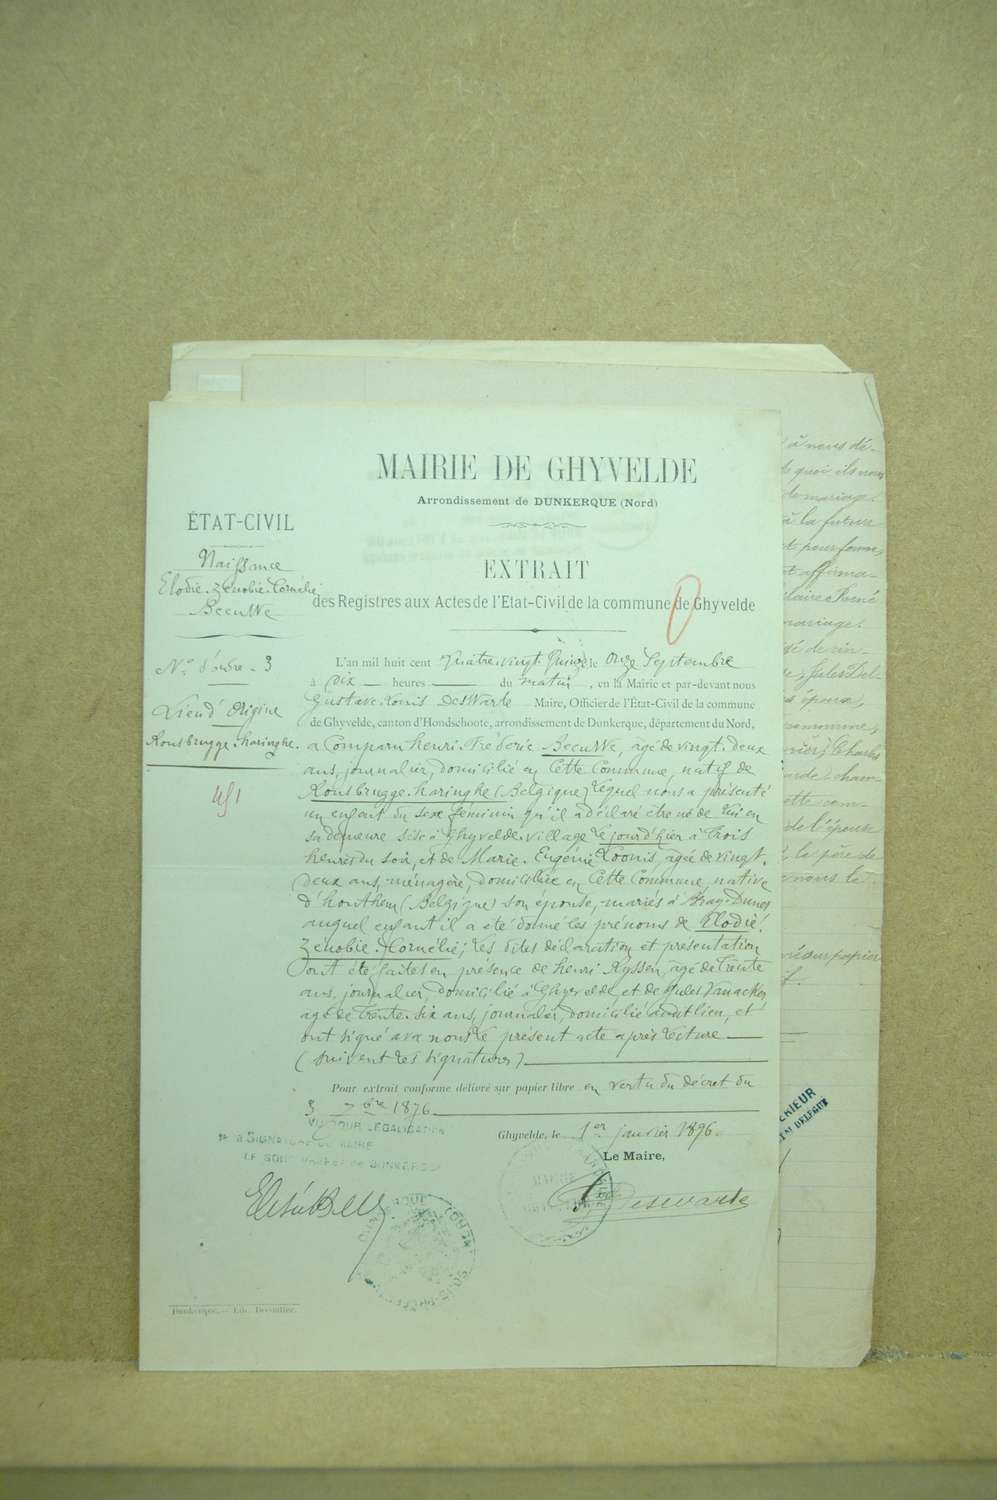 MAIRIE DE GHYVELDE
Arrondissement de DUNKERQUE (Nord)
ÉTAT-CIVIL
Naissance
Elodie-Zénobie-Cornélie
Becuwe
N° d'ordre - 3
Lieu d'Origine
Rousbrugge-Haringhe.
EXTRAIT
des Registres aux Actes de l'Etat-Civil de la commune de Ghyvelde
L'an mil huit cent quatre-vingt quinze le onze Septembre
à dix heures du matin, en la Mairie et par-devant nous
Gustave Louis DesWarte Maire, Officier de l'Etat-Civil de la commune
de Ghyvelde, canton d'Hondschoote, arrondissement de Dunkerque, département du Nord,
a comparu Henri-Fréderic Becuwe, âgé de vingt-deux
ans, journalier, domicilié en cette Commune, natif de
Rousbrugge-Haringhe (Belgique) lequel nous a présenté
un enfant du sexe féminin qu'il a déclaré être né de lui en
sa demeure sise à Ghyvelde-village le jour d'hier à trois
heures du soir, et de Marie-Eugénie Loonis, agée de vingt-
deux ans, ménagère, domiciliée en cette Commune, native
d'houthem (Belgique) son épouse, mariés à Bray-Dunes
auquel enfant il a été donné les prénoms de Elodie-
Zénobie-Cornélie; les dites déclaration et présentation
ont été faites en présence de henri Ryssen, âgé de trente
ans, journalier, domicilié à Ghyvelde, et de Jules Vanacker
âgé de trente-six ans, journalier, domicilié audit lieu, et
ont signé avec nous le présent acte après lecture
(suivent les signatures)
Pour extrait conforme délivré sur papier libre en vertu du décret du
3 7bre 1876
VU POUR LÉGALISATION
DE LA SIGNATURE DU MAIRE
LE SOUS-PRÉFET DE DUNKERQUE
Ghyvelde, le 1er janvier 1896.
Le Maire,
Deswarte
MAIRIE
Dunkerque. — Lib.
à nous dé-
de quoi ils nous
de mariage.
à la future
et pour femme,
et affirma-
mariage.
Jules Del-
époux,
Charles
cham-
cette com-
de l'épouse
le père de
nous le
sur papier
ÉRIEUR
DÉLÉGUÉ